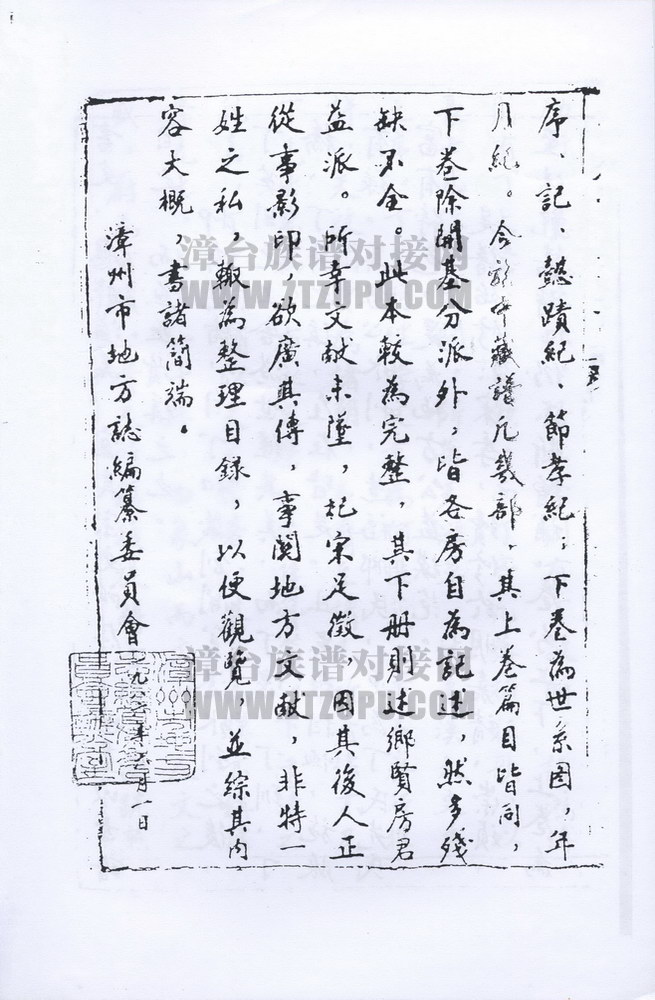 序、記、懿蹟紀、節孝紀；下卷為世系图，年
月紀。今族中藏譜凡幾部，其上卷篇目皆同，
下卷除開基分派外，皆各房自為記述，然多殘
缺不全。此本較為完整，其下册則述鄉賢房君
益派。所幸文献未墜，杞宋足徵，因其後人正
從事影印，欲廣其傳，事関地方文献 非特一
姓之私，輙為整理目録，以便觀覽，並綜其内
容大概，書諸简端。
漳州市地方誌編纂委員會
月一日
漳台族谱对接网
WWW.ZTZUPU.COM
漳台族谱对接网
WWW.ZTZUPU.COM